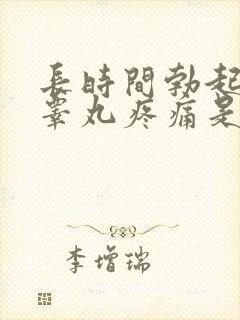 長時間勃起
睾丸疼痛是
李增瑞